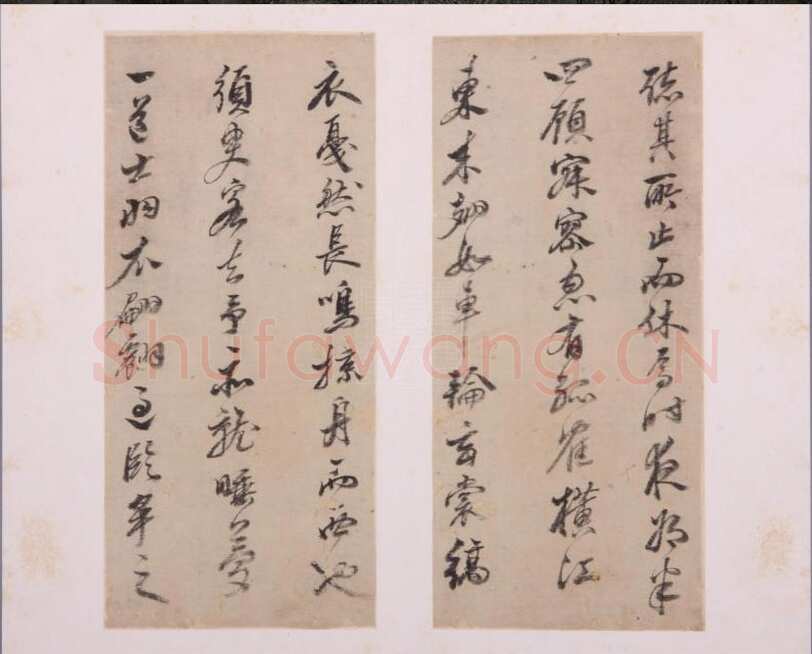 聽其所止而休焉時夜將半
四顧寂寥忽有孤鶴橫江
東來翅如車輪玄裳縞
衣戛然長鳴掠舟而西也
須臾客去予亦就睡夢
一道士羽衣翩翩過臨皋之
Shufawang.CN